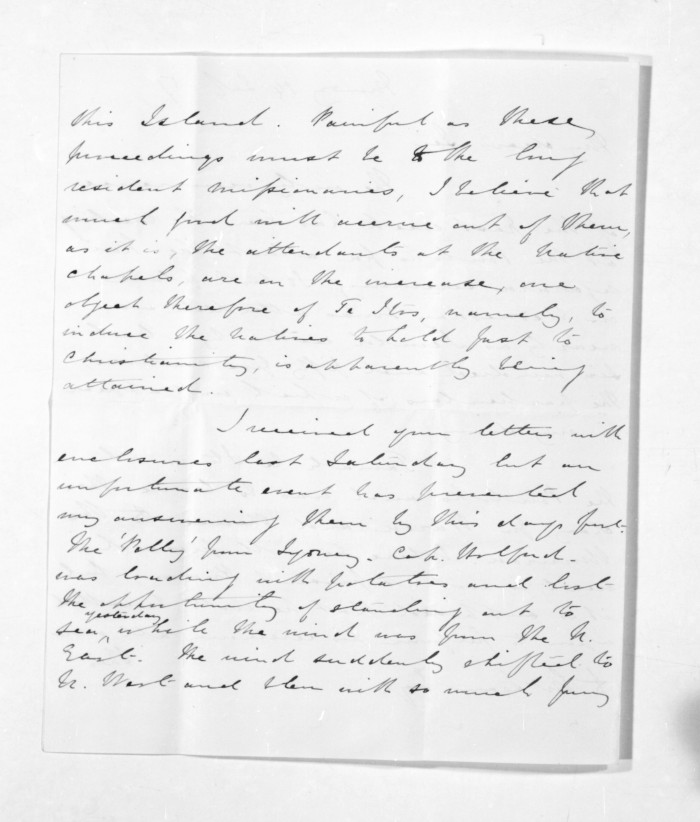 this Island. Painful as these
proceedings must be to the long
resident missionaries, I believe that
much good will accrue out of them,
as it is, the attendants at the native
chapels, are on the increase, one
object therefore of Te Ito's, namely, to
induce the natives to hold fast to
christianity, is apparently being
attained.
I received your letters with
enclosures last Saturday but an
unfortunate event has prevented
my answering them by this days post.
The 'Polly' from Sydney - Cap. Wolford -
was loading with potatoes and lost
the opportunity of standing out to
yesterday
sea, while the wind was from the N.
East. The wind suddenly shifted to
N. West and blew with so much fury